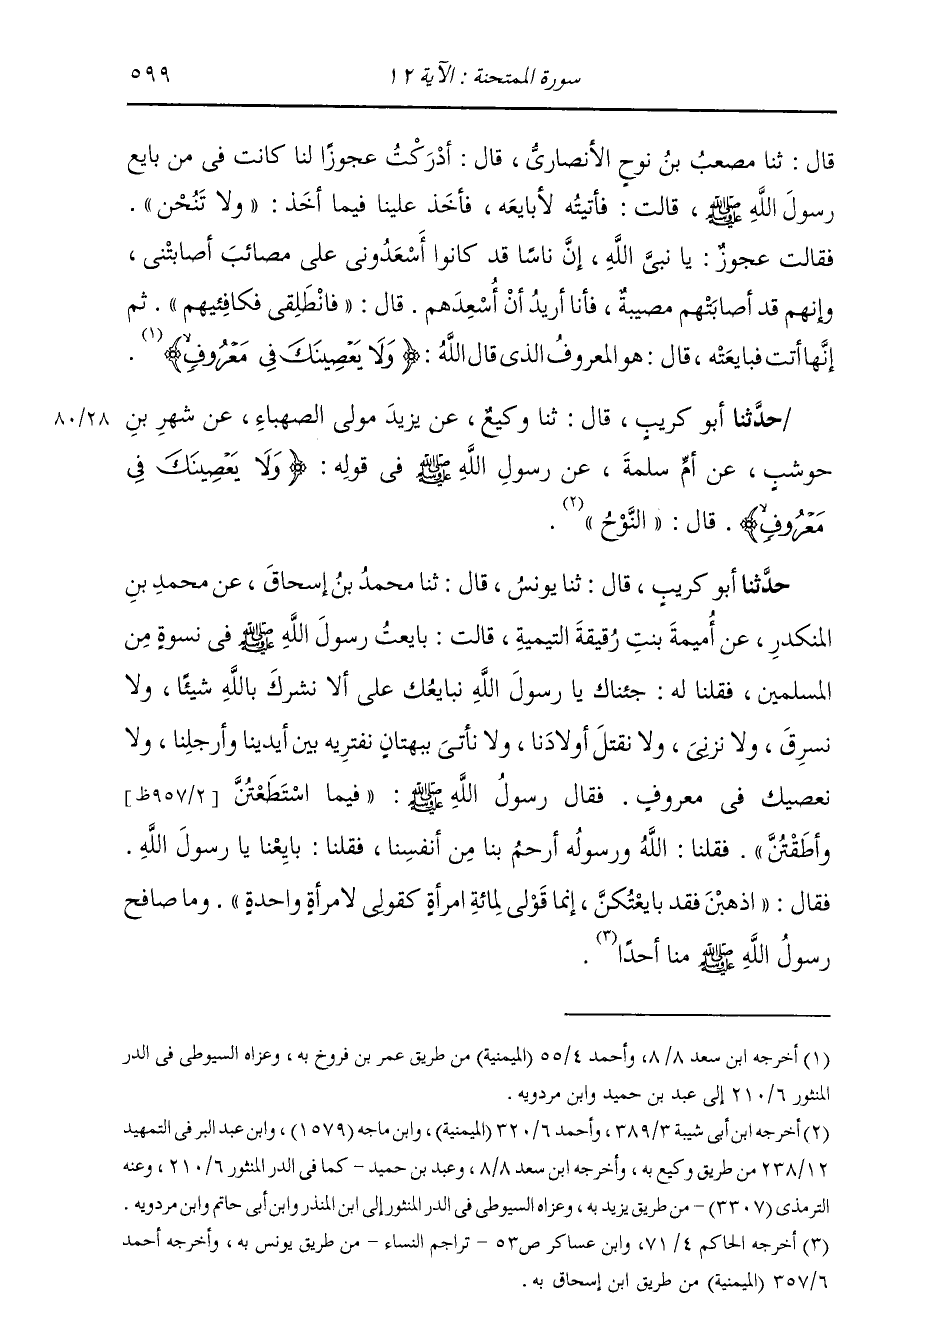 سورة الممتحنة : الآية ١٢
٥٩٩
قال : ثنا مصعبُ بنُ نوحٍ الأنصاريُّ ، قال : أدْرَكْتُ عجوزًا لنا كانت فى من بايع
رسولَ اللَّهِ ﷺ ، قالت : فأتيتُه لأبايعَه ، فأخَذ علينا فيما أخَذ : « ولا تَنُحْن » .
فقالت عجوزٌ : يا نبىَّ اللَّهِ ، إنَّ ناسًا قد كانوا أَسْعَدُونى على مصائبَ أصابتْنى ،
وإنهم قد أصابَتْهم مصيبةٌ ، فأنا أريدُ أنْ أُسْعِدَهم . قال : « فانْطَلِقى فكافِئيهم » . ثم
إنَّها أتت فبايعَتْه ، قال : هو المعروفُ الذى قال اللَّهُ : ﴿ وَلَا يَعْصِينَكَ فِى مَعْرُوفٍ ﴾ (١) .
/حدَّثنا أبو كريبٍ ، قال : ثنا وكيعٌ ، عن يزيدَ مولى الصهباءِ ، عن شهرِ بنِ ٨٠/٢٨
حوشبٍ ، عن أمِّ سلمةَ ، عن رسولِ اللَّهِ ﷺ فى قولِه : ﴿ وَلَا يَعْصِينَكَ فِى
مَعْرُوفٍ ﴾ . قال : « النَّوْحُ » (٢) .
حدَّثنا أبو كريبٍ ، قال : ثنا يونسُ ، قال : ثنا محمدُ بنُ إسحاقَ ، عن محمدِ بنِ
المنكدرِ ، عن أُميمةَ بنتِ رُقيقةَ التيميةِ ، قالت : بايعتُ رسولَ اللَّهِ ﷺ فى نسوةٍ مِن
المسلمين ، فقلنا له : جئناك يا رسولَ اللَّهِ نبايعُك على ألا نشركَ باللَّهِ شيئًا ، ولا
نسرِقَ ، ولا نزنِىَ ، ولا نقتلَ أولادَنا ، ولا نأتىَ ببهتانٍ نفترِيه بين أيدينا وأرجلِنا ، ولا
نعصيك فى معروفٍ . فقال رسولُ اللَّهِ ﷺ : « فيما اسْتَطَعْتُنَّ [٩٥٧/٢ظ]
وأطَقْتُنَّ » . فقلنا : اللَّهُ ورسولُه أرحمُ بنا مِن أنفسِنا ، فقلنا : بايِعْنا يا رسولَ اللَّهِ .
فقال : « اذهبْنَ فقد بايعْتُكنَّ ، إنما قَوْلى لمائةِ امرأةٍ كقولى لامرأةٍ واحدةٍ » . وما صافح
رسولُ اللَّهِ ﷺ منا أحدًا (٣) .
(١) أخرجه ابن سعد ٨/٨، وأحمد ٥٥/٤ (الميمنية) من طريق عمر بن فروخ به ، وعزاه السيوطى فى الدر
المنثور ٢١٠/٦ إلى عبد بن حميد وابن مردويه .
(٢) أخرجه ابن أبى شيبة ٣٨٩/٣ ، وأحمد ٣٢٠/٦ (الميمنية) ، وابن ماجه (١٥٧٩) ، وابن عبد البر فى التمهيد
٢٣٨/١٢ من طريق وكيع به ، وأخرجه ابن سعد ٨/٨ ، وعبد بن حميد - كما فى الدر المنثور ٢١٠/٦ ، وعنه
الترمذى (٣٣٠٧) - من طريق يزيد به ، وعزاه السيوطى فى الدر المنثور إلى ابن المنذر وابن أبى حاتم وابن مردويه .
(٣) أخرجه الحاكم ٧١/٤، وابن عساكر ص٥٣ - تراجم النساء - من طريق يونس به ، وأخرجه أحمد
٣٥٧/٦ (الميمنية) من طريق ابن إسحاق به .